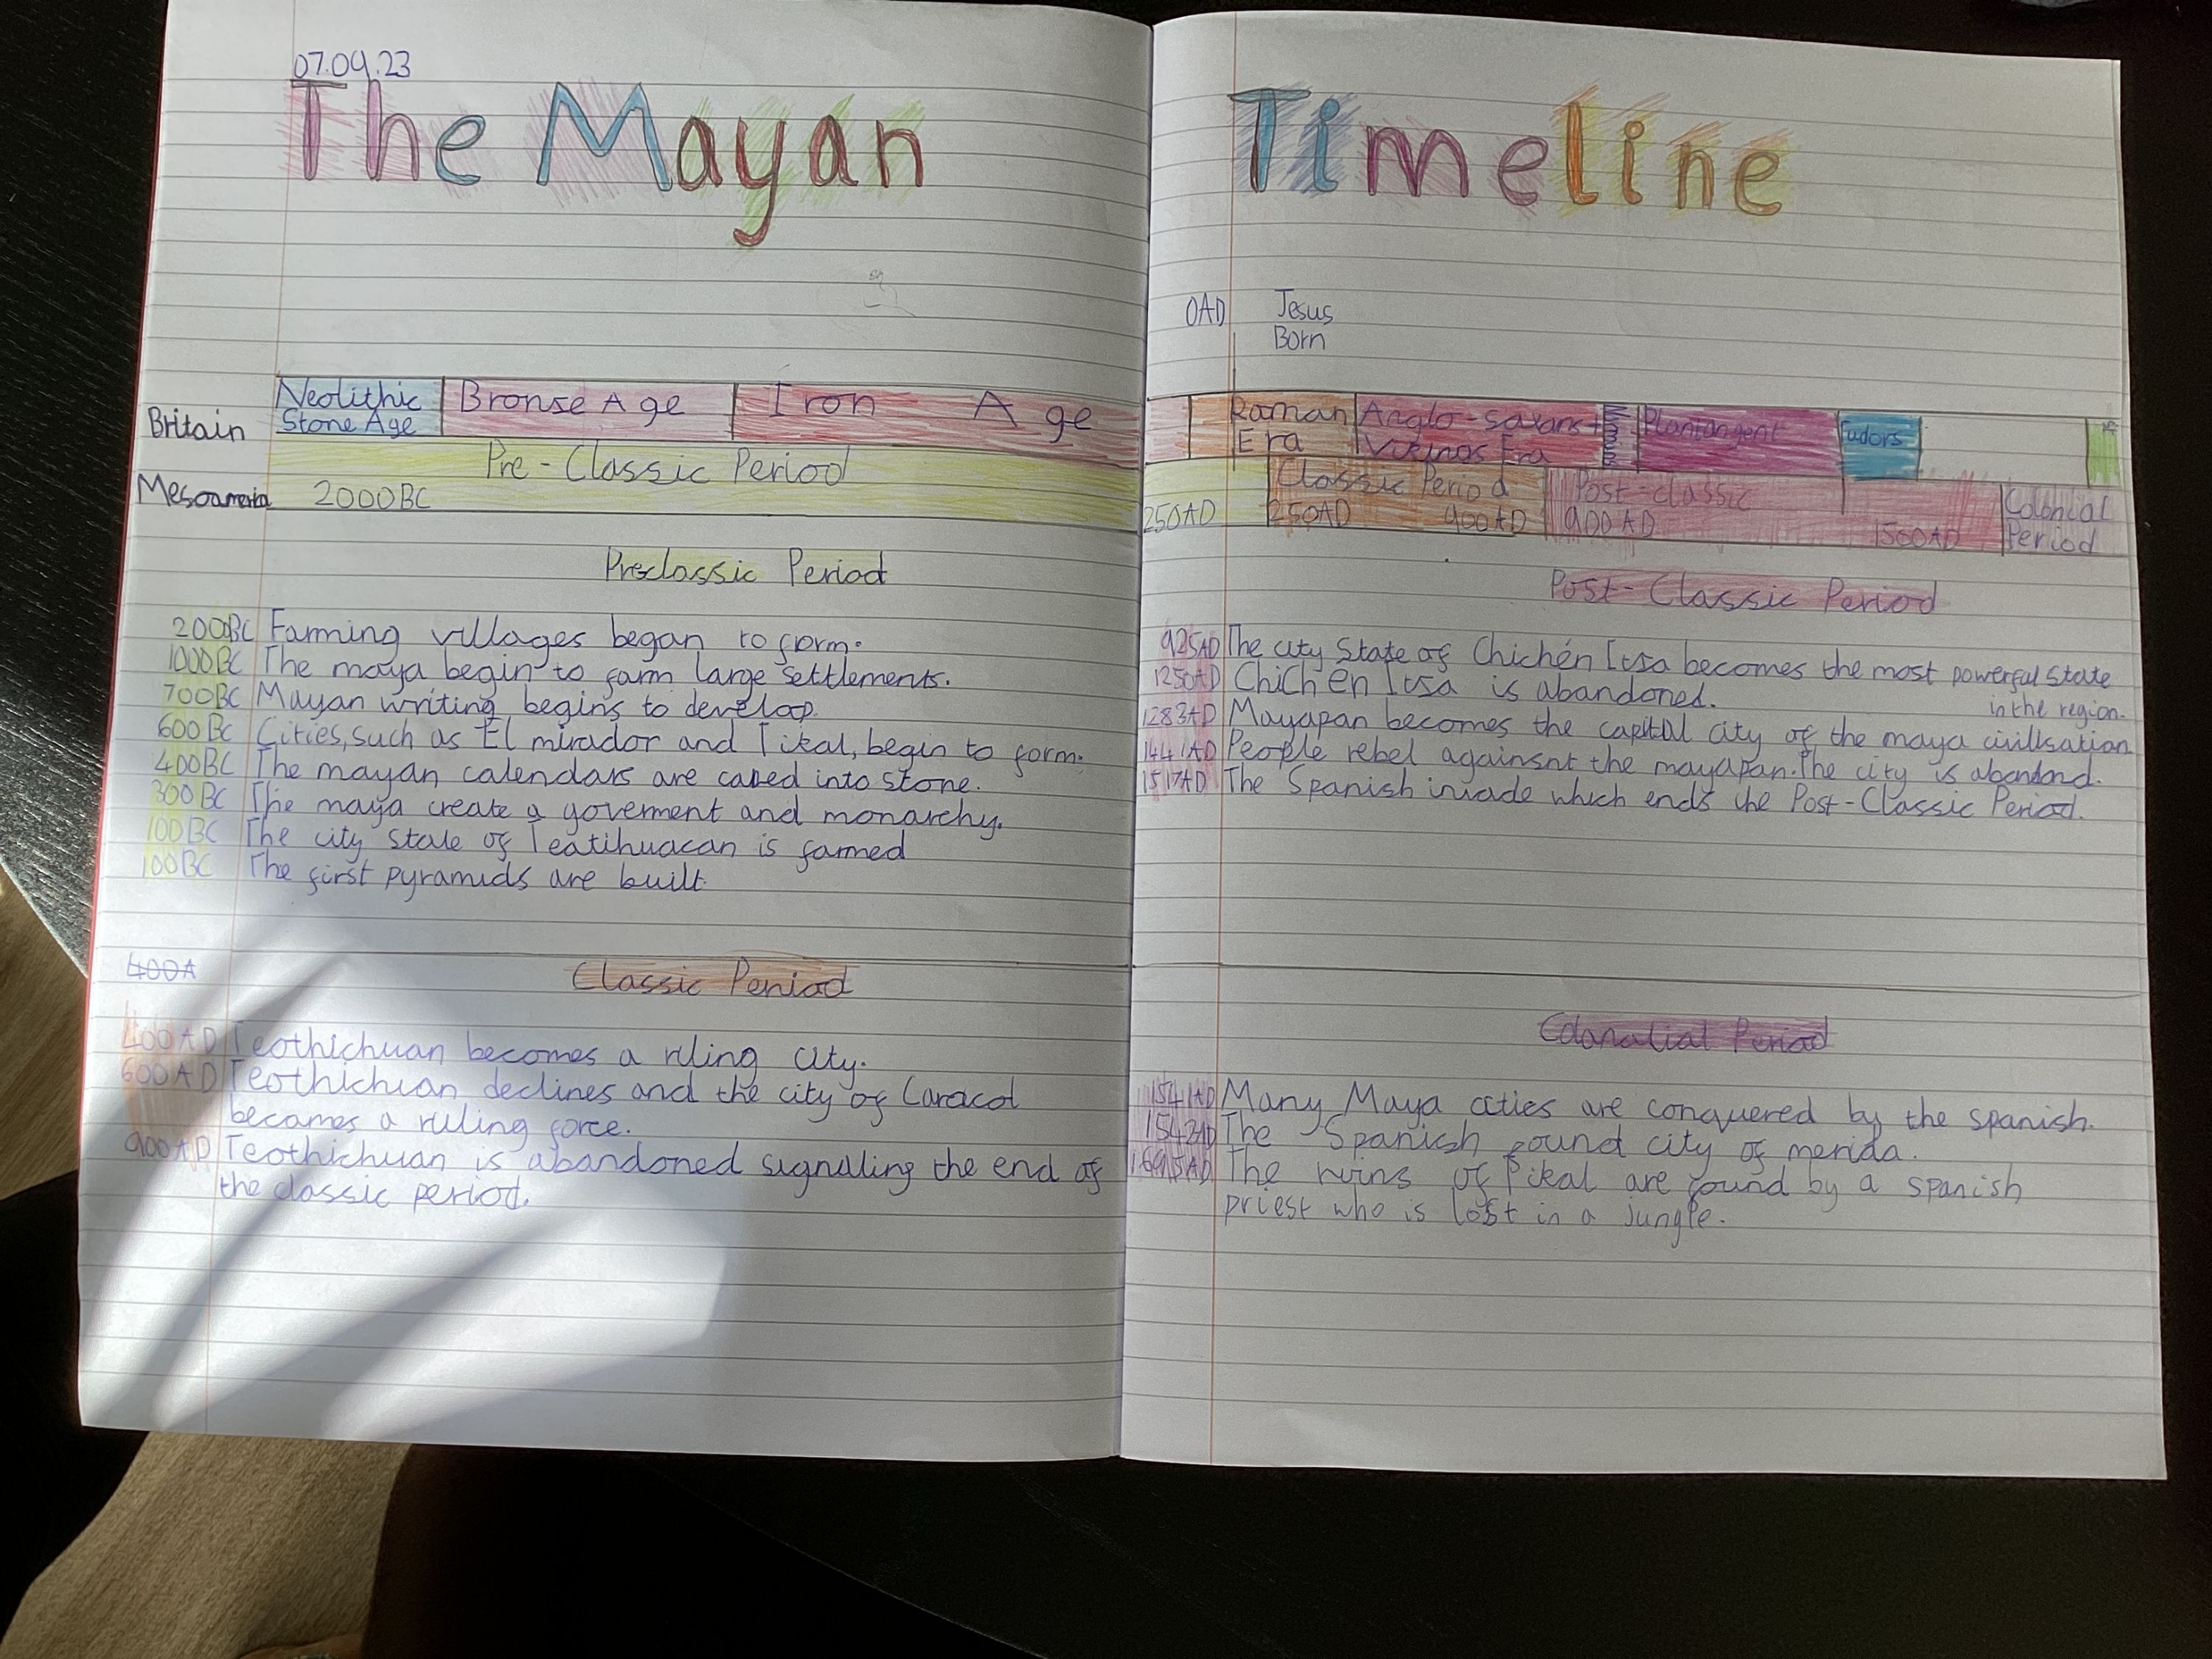 07.09.23
The Mayan Timeline
0AD Jesus
Born
Britain
Neolithic
Stone Age
Bronse Age
Iron Age
Roman
Era
Anglo-saxans +
Vikings Era
Plantangent
Tudors
Mesoamerica
Pre-Classic Period
2000BC
250AD
Classic Period
250AD 900AD
Post-classic
900AD
1500AD
Colonial
Period
Preclassic Period
2000BC Farming villages began to form.
1000BC The maya begin to farm large settlements.
700BC Mayan writing begins to develop.
600BC Cities, such as El mirador and Tikal, begin to form.
400BC The mayan calendars are caved into stone.
300BC The maya create a goverment and monarchy.
100BC The city state of Teatihuacan is formed
100BC The first pyramids are built.
400A
Classic Period
400AD Teothichuan becomes a ruling city.
600AD Teothichuan declines and the city of Caracol
becomes a ruling force.
900AD Teothichuan is abandoned signaling the end of
the classic period.
Post-Classic Period
925AD The city State of Chichén Itsa becomes the most powerful state
in the region.
1250AD Chichen Itsa is abandoned.
1283AD Mayapan becomes the capital city of the maya civilisation
1441AD People rebel againsnt the mayapan. The city is abandond.
1517AD The Spanish invade which ends the Post-Classic Period.
Colanalial Period
1541AD Many Maya cities are conquered by the spanish.
1542AD The Spanish found city of merida.
1695AD The ruins of Tikal are found by a spanish
priest who is lost in a jungle.